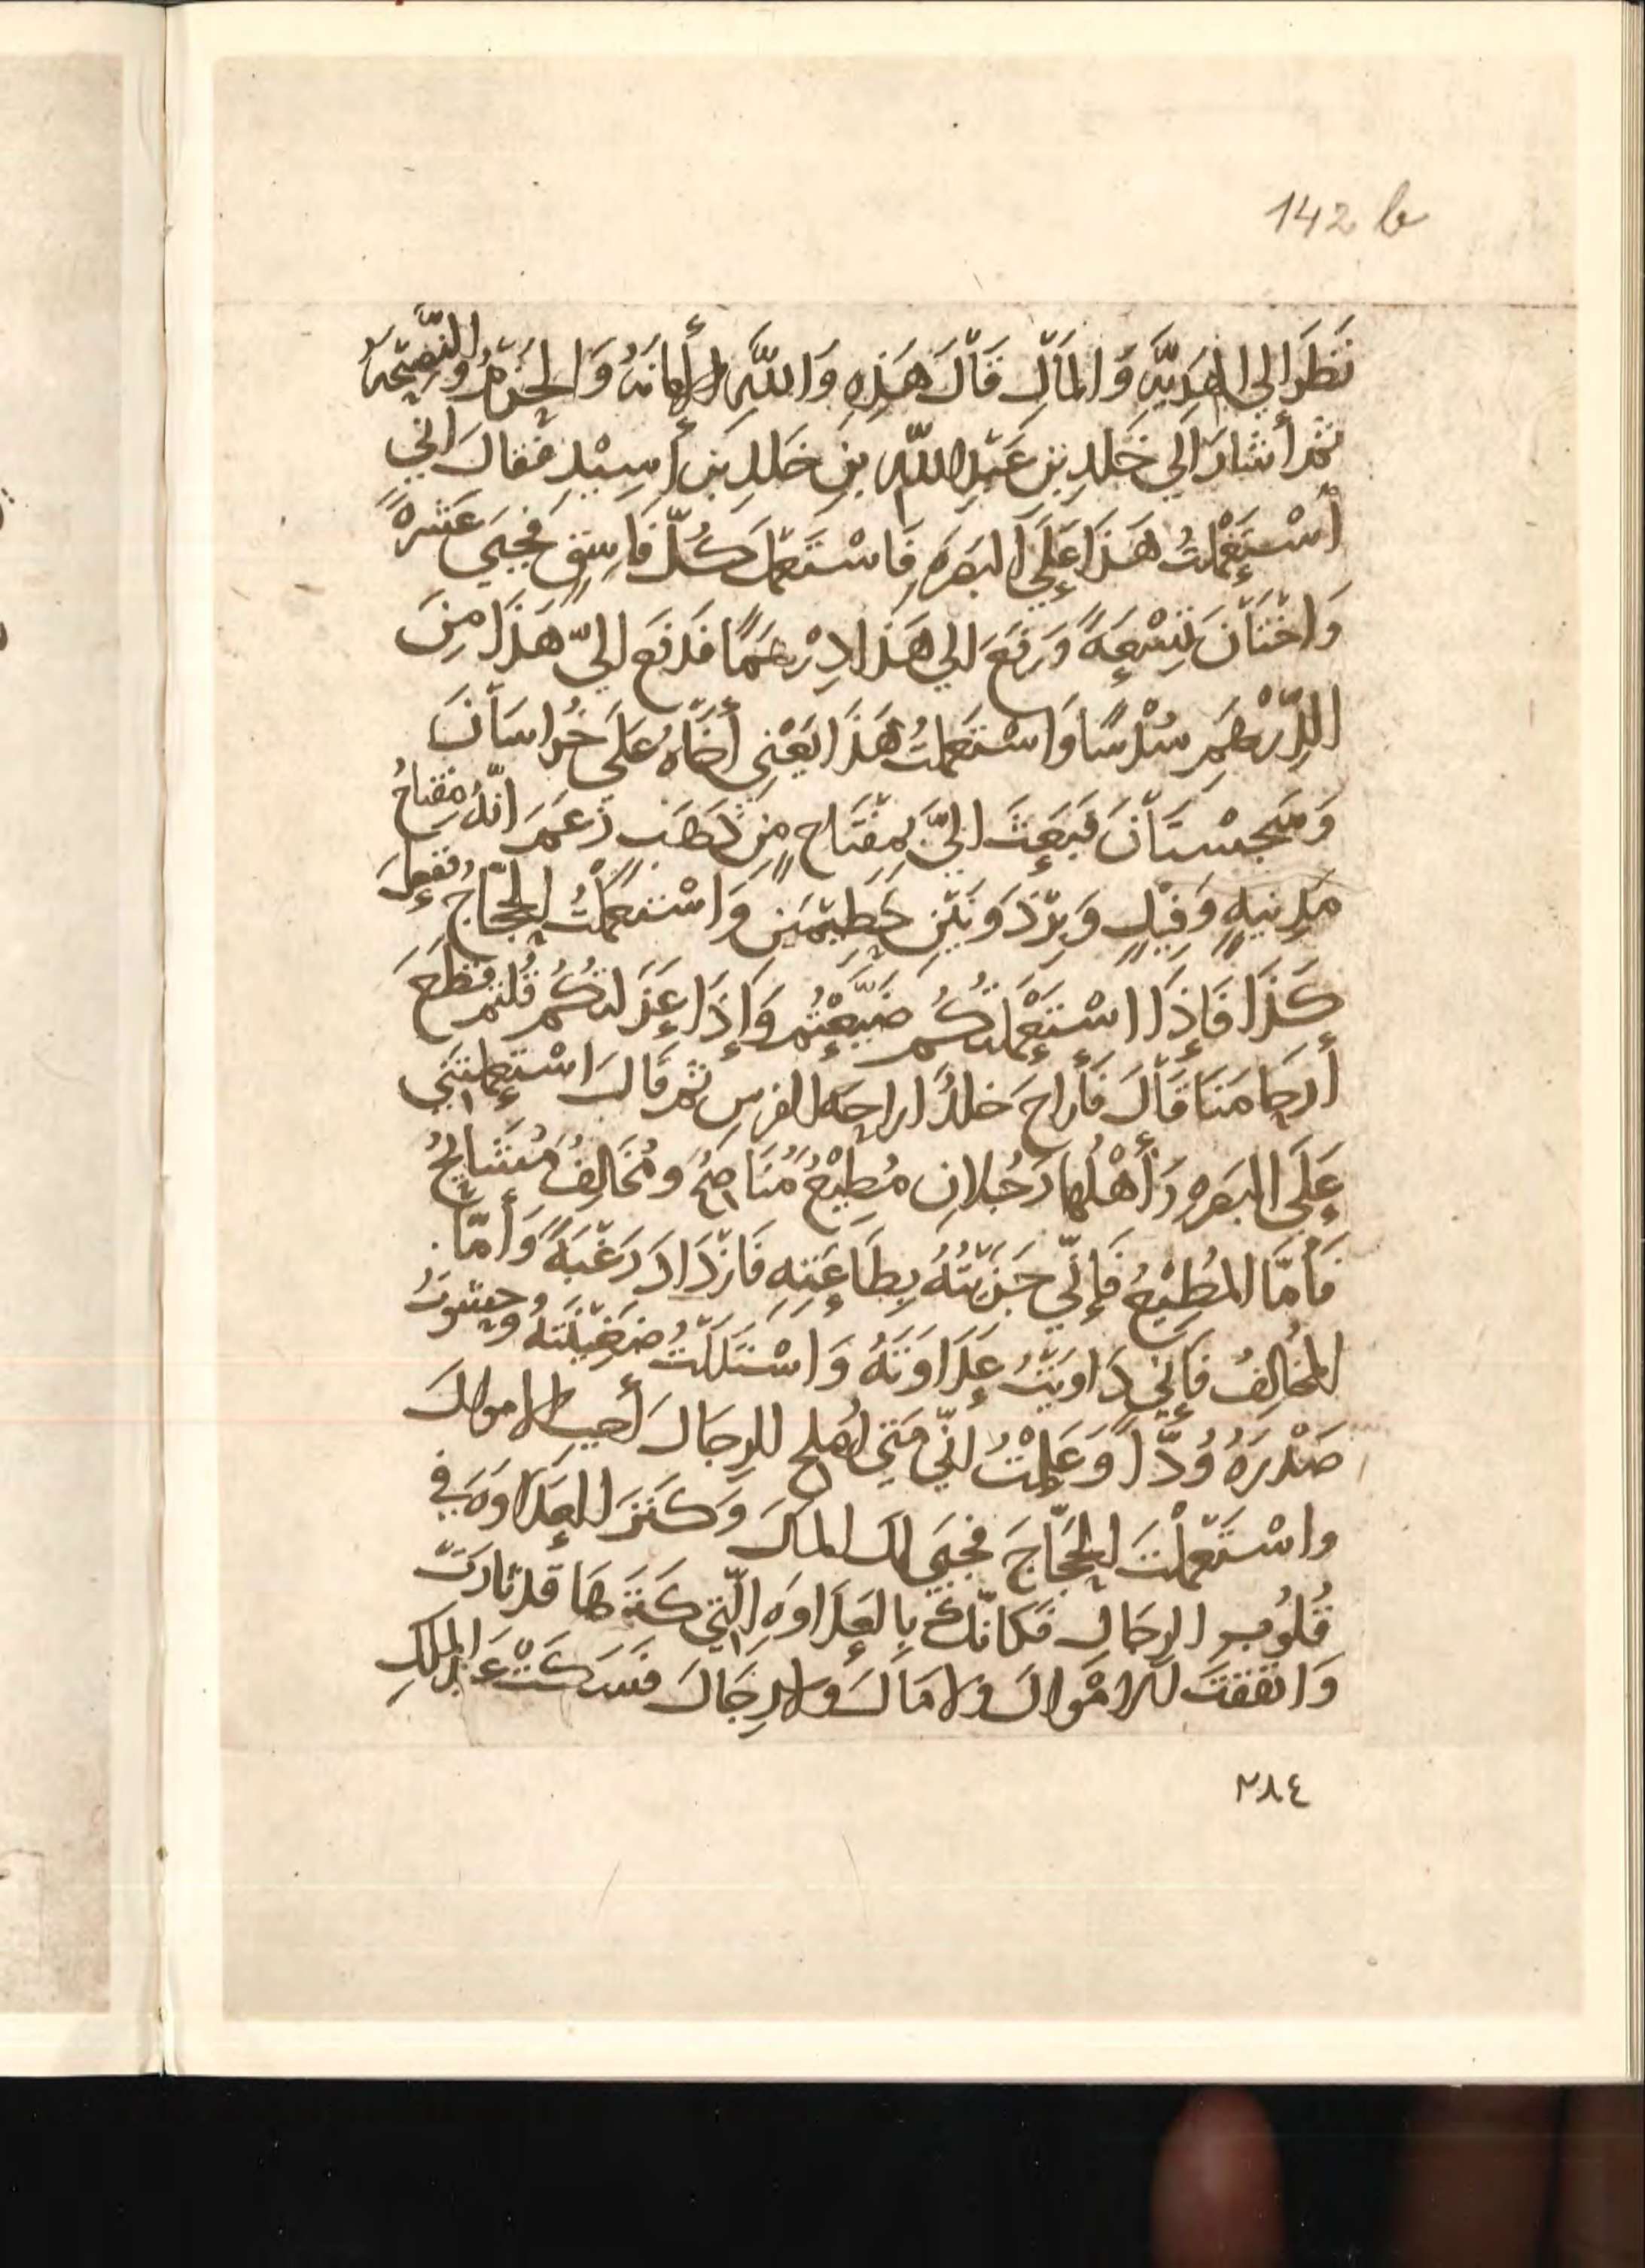 142 b
نَظَرَ الي الهَدِيَّه وَالمَالِ قَالَ هَذِهِ وَاللَّهِ الأَمَانَهُ وَالحَزْمُ والنَّصِيْحَهُ
ثم أَشَارَ الي خَلِدِ بنِ عَبْدِ اللَّه بنِ خَلِدِ بنِ أَسِيْدٍ فَقَالَ انّي
أسْتَعْمَلْتُ هَذَا عَلَي البَصرَهِ فَاسْتَعْمَلَ كُلَّ فَاسِقٍ فجَبَي عَشَرهً
وَاخْتَانَ تِسْعَهً وَرَفَعَ الي هَذَا دِرْهَمًا فَدَفَع اليّ هَذَا مِنَ
الدِّرْهَمِ سُدْسًا وَاسْتَعمَلتُ هَذَا يَعْنِي أَخَاهُ عَلَي خُراسَانَ
وَسِجِسْتَانَ فَبَعَثَ اليَّ بِمِفْتَاحٍ مِن ذَهَبٍ زَعَمَ انَّهُ مِفتَاحُ
مَدِينهٍ وَفِيْلٍ وَبِرْذَوْنَيْنِ حَطِيْمَيْنِ وَاسْتَعمَلْتُ الحَجَّاجَ فَفعَلَ
كَذَا فَإِذَا اسْتَعْمَلتُكُم ضَيَّعْتُم وَإِذَا عَزَلتُكُم قُلتُم قَطَعَ
أَرحَامَنَا قَالَ فَأَراحَ خلدٌ اراحه الفرس ثم قَالَ اسْتَعمَلْتَنِي
عَلَي البَصرهِ وَأَهْلُها رَجُلانِ مُطِيْعٌ مُنَاصِحٌ ومُخَالِفٌ مُشَايِحٌ
فَأَمَّا المُطِيْعُ فَإِنِّي جَزَيْتُهُ بِطَاعَتِهِ فَازْدَادَ رَغْبَهً وَأَمَّا
المُخَالِفُ فَإِنّي دَاوَيْتُ عَدَاوَتَهُ وَاسْتَلَلْتُ ضَغِيْنَتَهُ وحشَوتُ
صَدْرَهُ وُدًّا وَعَلِمْتُ انِّي مَتَي اُصلحِ الرِجَالَ أَجبِ الاموالَ
واسْتَعْمَلْتَ الحَجَّاجَ فجَبَي لكَ المالَ وَكَنَزَ العَدَاوَهَ في
قُلُوبِ الرِجَالِ فَكَانَّكَ بِالعَدَاوَهِ الَّتِي كَنَزهَا قَد ثَارَتْ
وَانفَقَتِ الامْوَالَ ولا مَالَ ولا رِجَالَ فسَكَتَ عَبدُ المَلكِ
٢٨٤